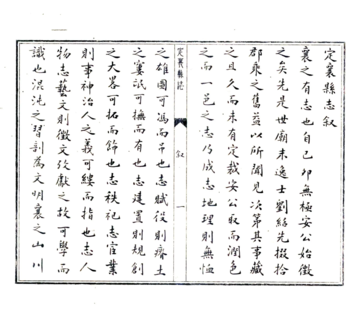 定襄縣志叙
襄之有志也自己卯無極安公始徵
之矣先是世廟末逸士劉緜先掇拾
郡乘之舊益以所聞見次第其事藏
之且久而未有定裁安公取而潤色
之而一邑之志乃成志地理則無恤
定襄縣志
叙
一
之雄圖可馮而弔也志賦役則瘠土
之窶訧可撫而有也志建置則規創
之大畧可拓而飾也志秩祀志官業
則事神治人之義可縷而指也志人
物志藝文則徵文攷獻之故可學而
識也混沌之習剖為文明襄之山川